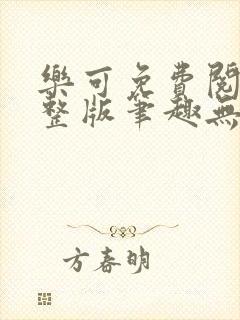 樂可免費閱
整版筆趣無
方春明